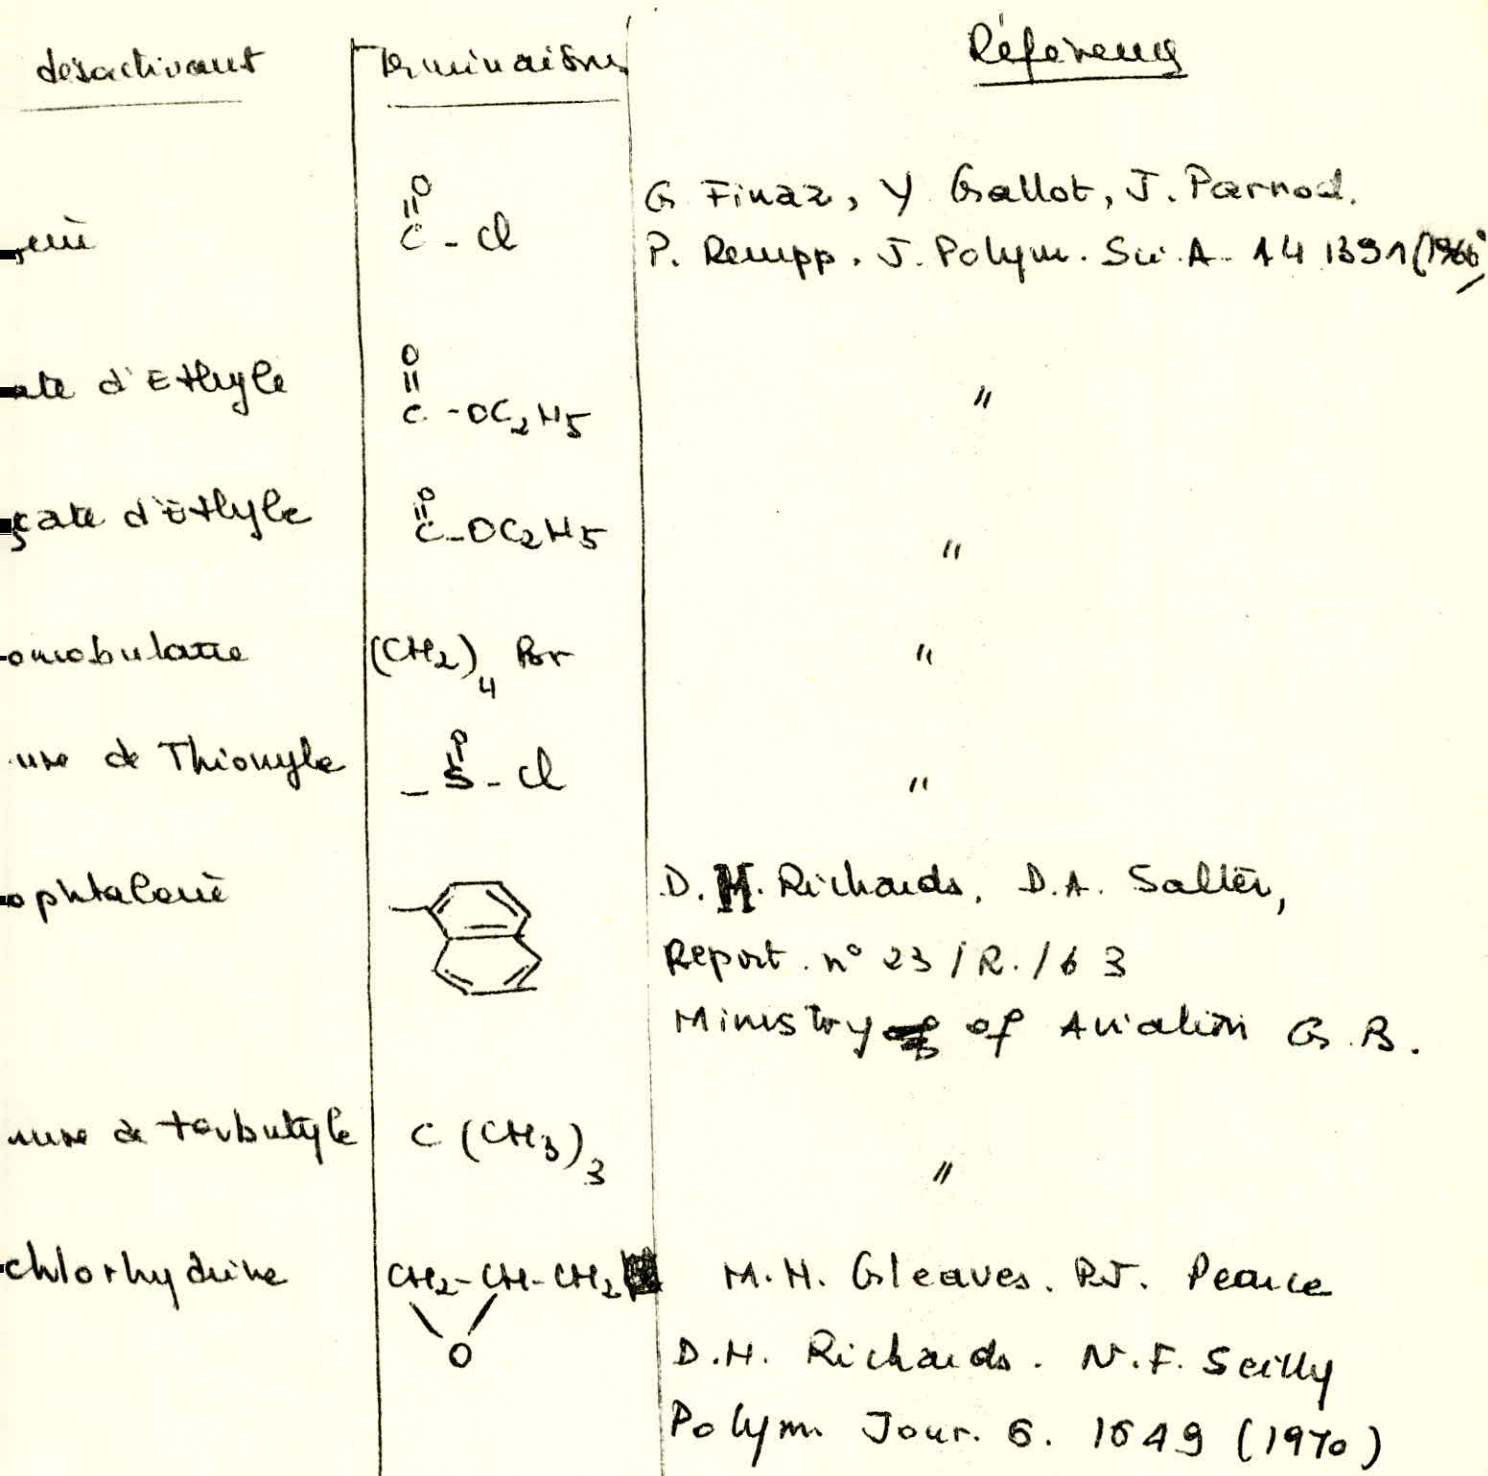 désactivant Terminaisons Références
O
||
gène C - Cl G Finaz, Y Gallot, J. Parrod.
P. Rempp. J. Polym. Sci. A. 14 1391 (1966)
O
||
ate d'Ethyle C - OC2H5 "
O
||
çate d'Ethyle C - OC2H5 "
omobutane (CH2)4 Br "
O
ure de Thionyle - S - Cl "
ophtalene D. H. Richards, D.A. Salter,
Report. n° 23 / R. / 63
Ministry of Aviation G. B.
rure de terbutyle C (CH3)3 "
chlorhydrine CH2-CH-CH2 M.H. Gleaves. R.J. Pearce
O D.H. Richards. N.F. Scilly
Polym. Jour. 6. 1649 (1970)